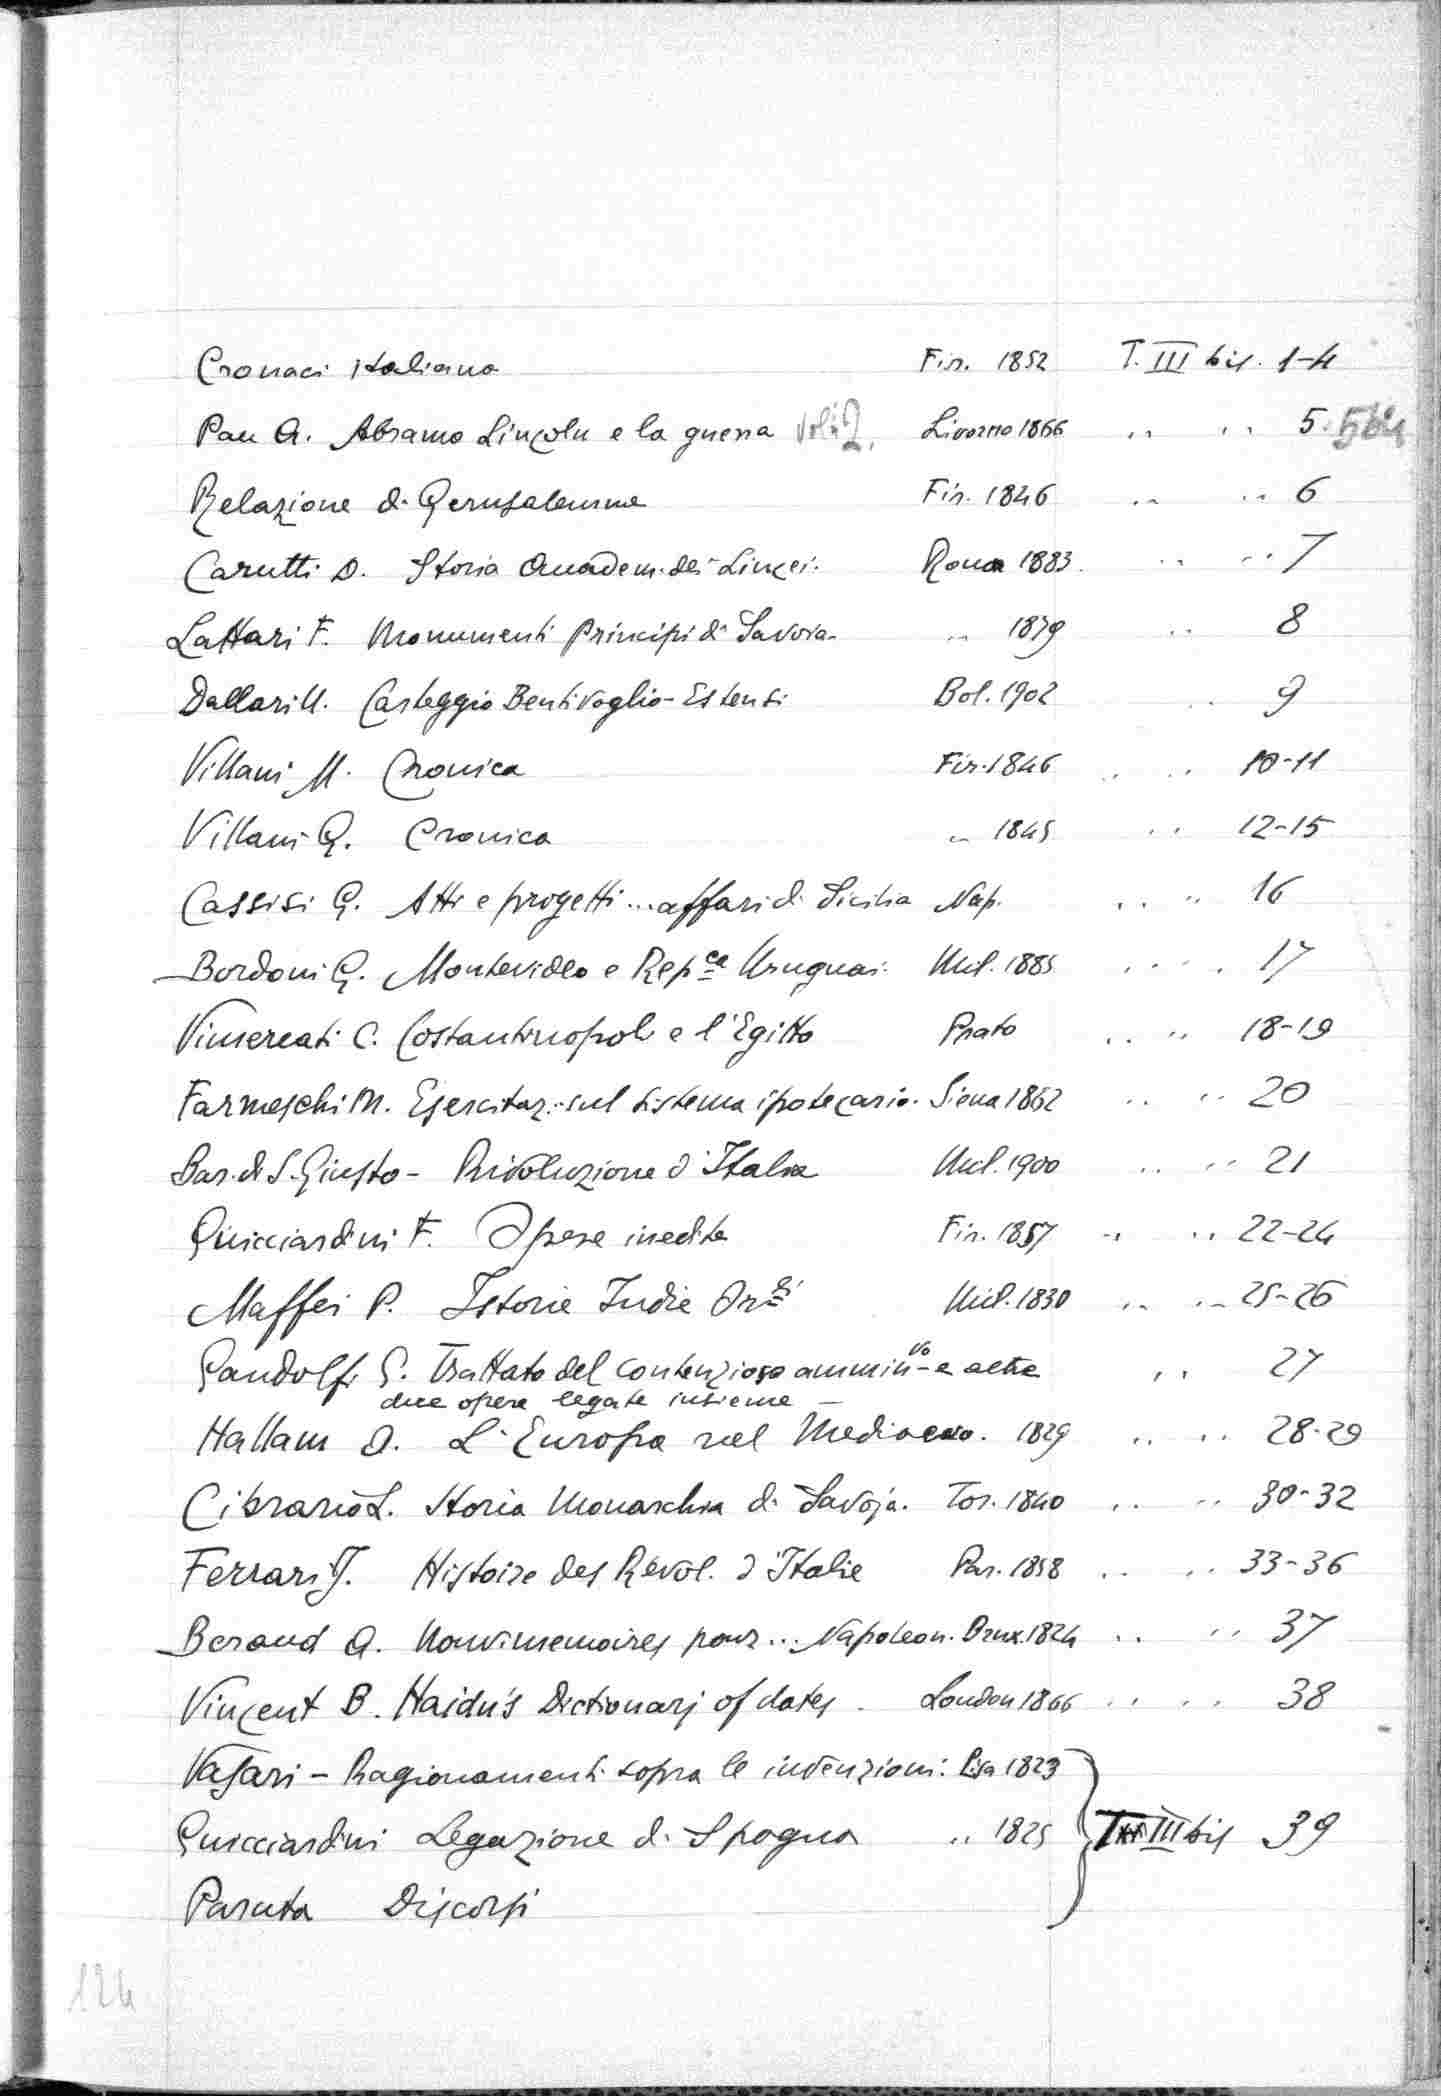 Cronaci italiana Fir. 1852 T. III bis. 1-4
Pau A. Abramo Lincoln e la guerra Vol. 2. Livorno 1866 " " 5. 5bis
Relazione di Gerusalemme Fir. 1846 " " 6
Carutti D. Storia Accadem. dei Lincei. Roma 1883. " " 7
Lattari F. Monumenti Principi di Savoia " 1879 " 8
Dallari U. Carteggio Bentivoglio-Estensi Bol. 1902 " 9
Villani M. Cronica Fir. 1846 " " 10-11
Villani G. Cronica " 1845 " 12-15
Cassisi G. Atti e progetti ... affari di Sicilia Nap. " " 16
Bordoni G. Montevideo e Rep.ca Uruguai. Mil. 1885 " " 17
Vimercati C. Costantinopoli e l'Egitto Prato " " 18-19
Farmeschi M. Esercitaz. sul sistema ipotecario. Siena 1862 " " 20
Bar. di S. Giusto - Rivoluzione d'Italia Mil. 1900 " " 21
Guicciardini F. Opere inedite Fir. 1857 " " 22-24
Maffei P. Istorie Indie Or.li Mil. 1830 " " 25-26
Gandolfi G. Trattato del contenzioso ammin.vo e altre " 27
due opere legate insieme -
Hallam A. L'Europa nel Medioevo. 1829 " " 28-29
Cibrario L. Storia Monarchia di Savoja. Tor. 1840 " " 30-32
Ferrari J. Histoire des Révol. d'Italie Par. 1858 " " 33-36
Beraud A. memoires pour ... Napoleon. Brux. 1824 " " 37
Vincent B. Haidn's Dictionarj of dates. London 1866 " " 38
Vasari - Ragionamenti sopra le invenzioni: Pisa 1823
Guicciardini Legazione di Spagna " 1825 T. III bis 39
Paruta Discorsi
124